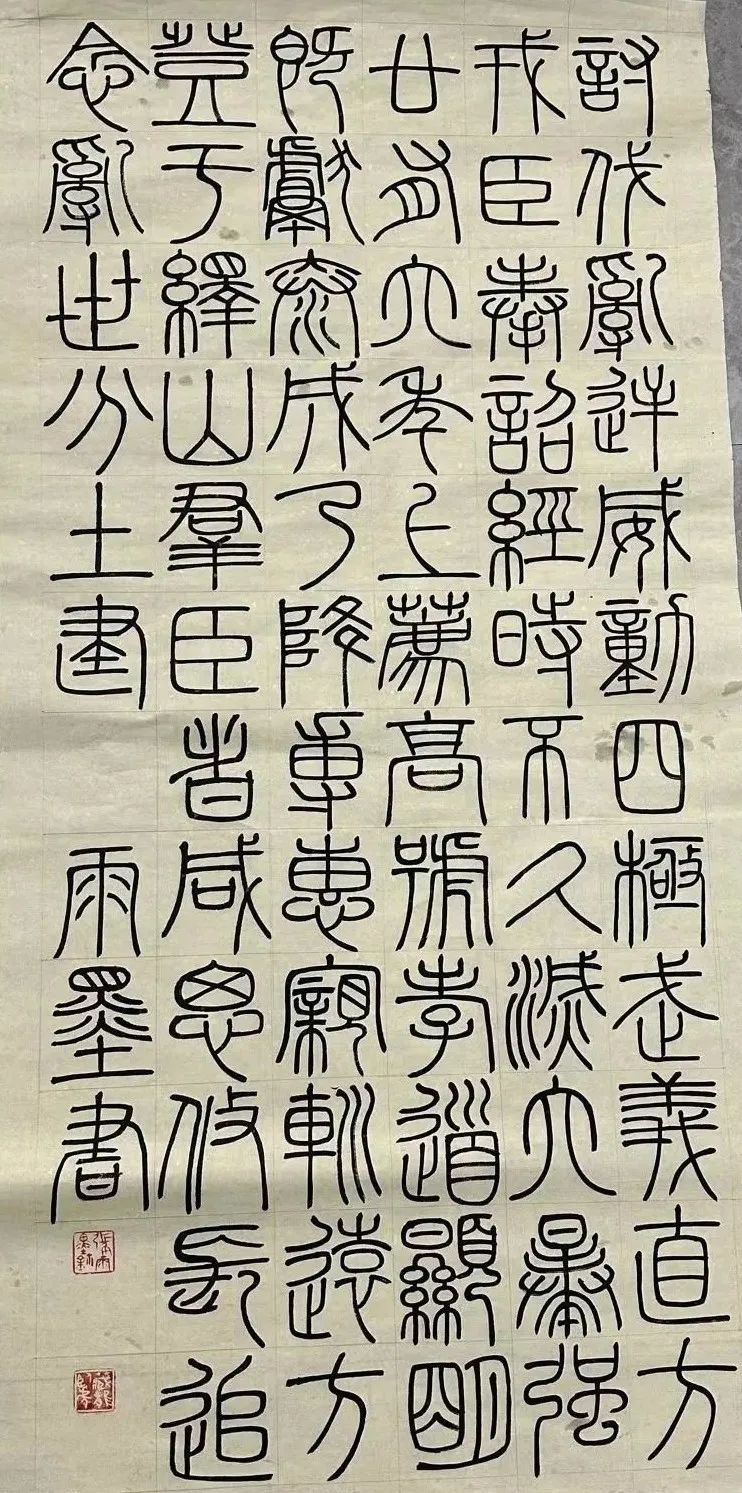 討伐亂逆威動四極武義直方
戎臣奉詔經時不久滅六暴強
廿有六年上薦高號孝道顯明
既獻泰成乃降專惠寴䡅遠方
登于繹山羣臣者咸思攸長追
念亂世分土建
雨墨書